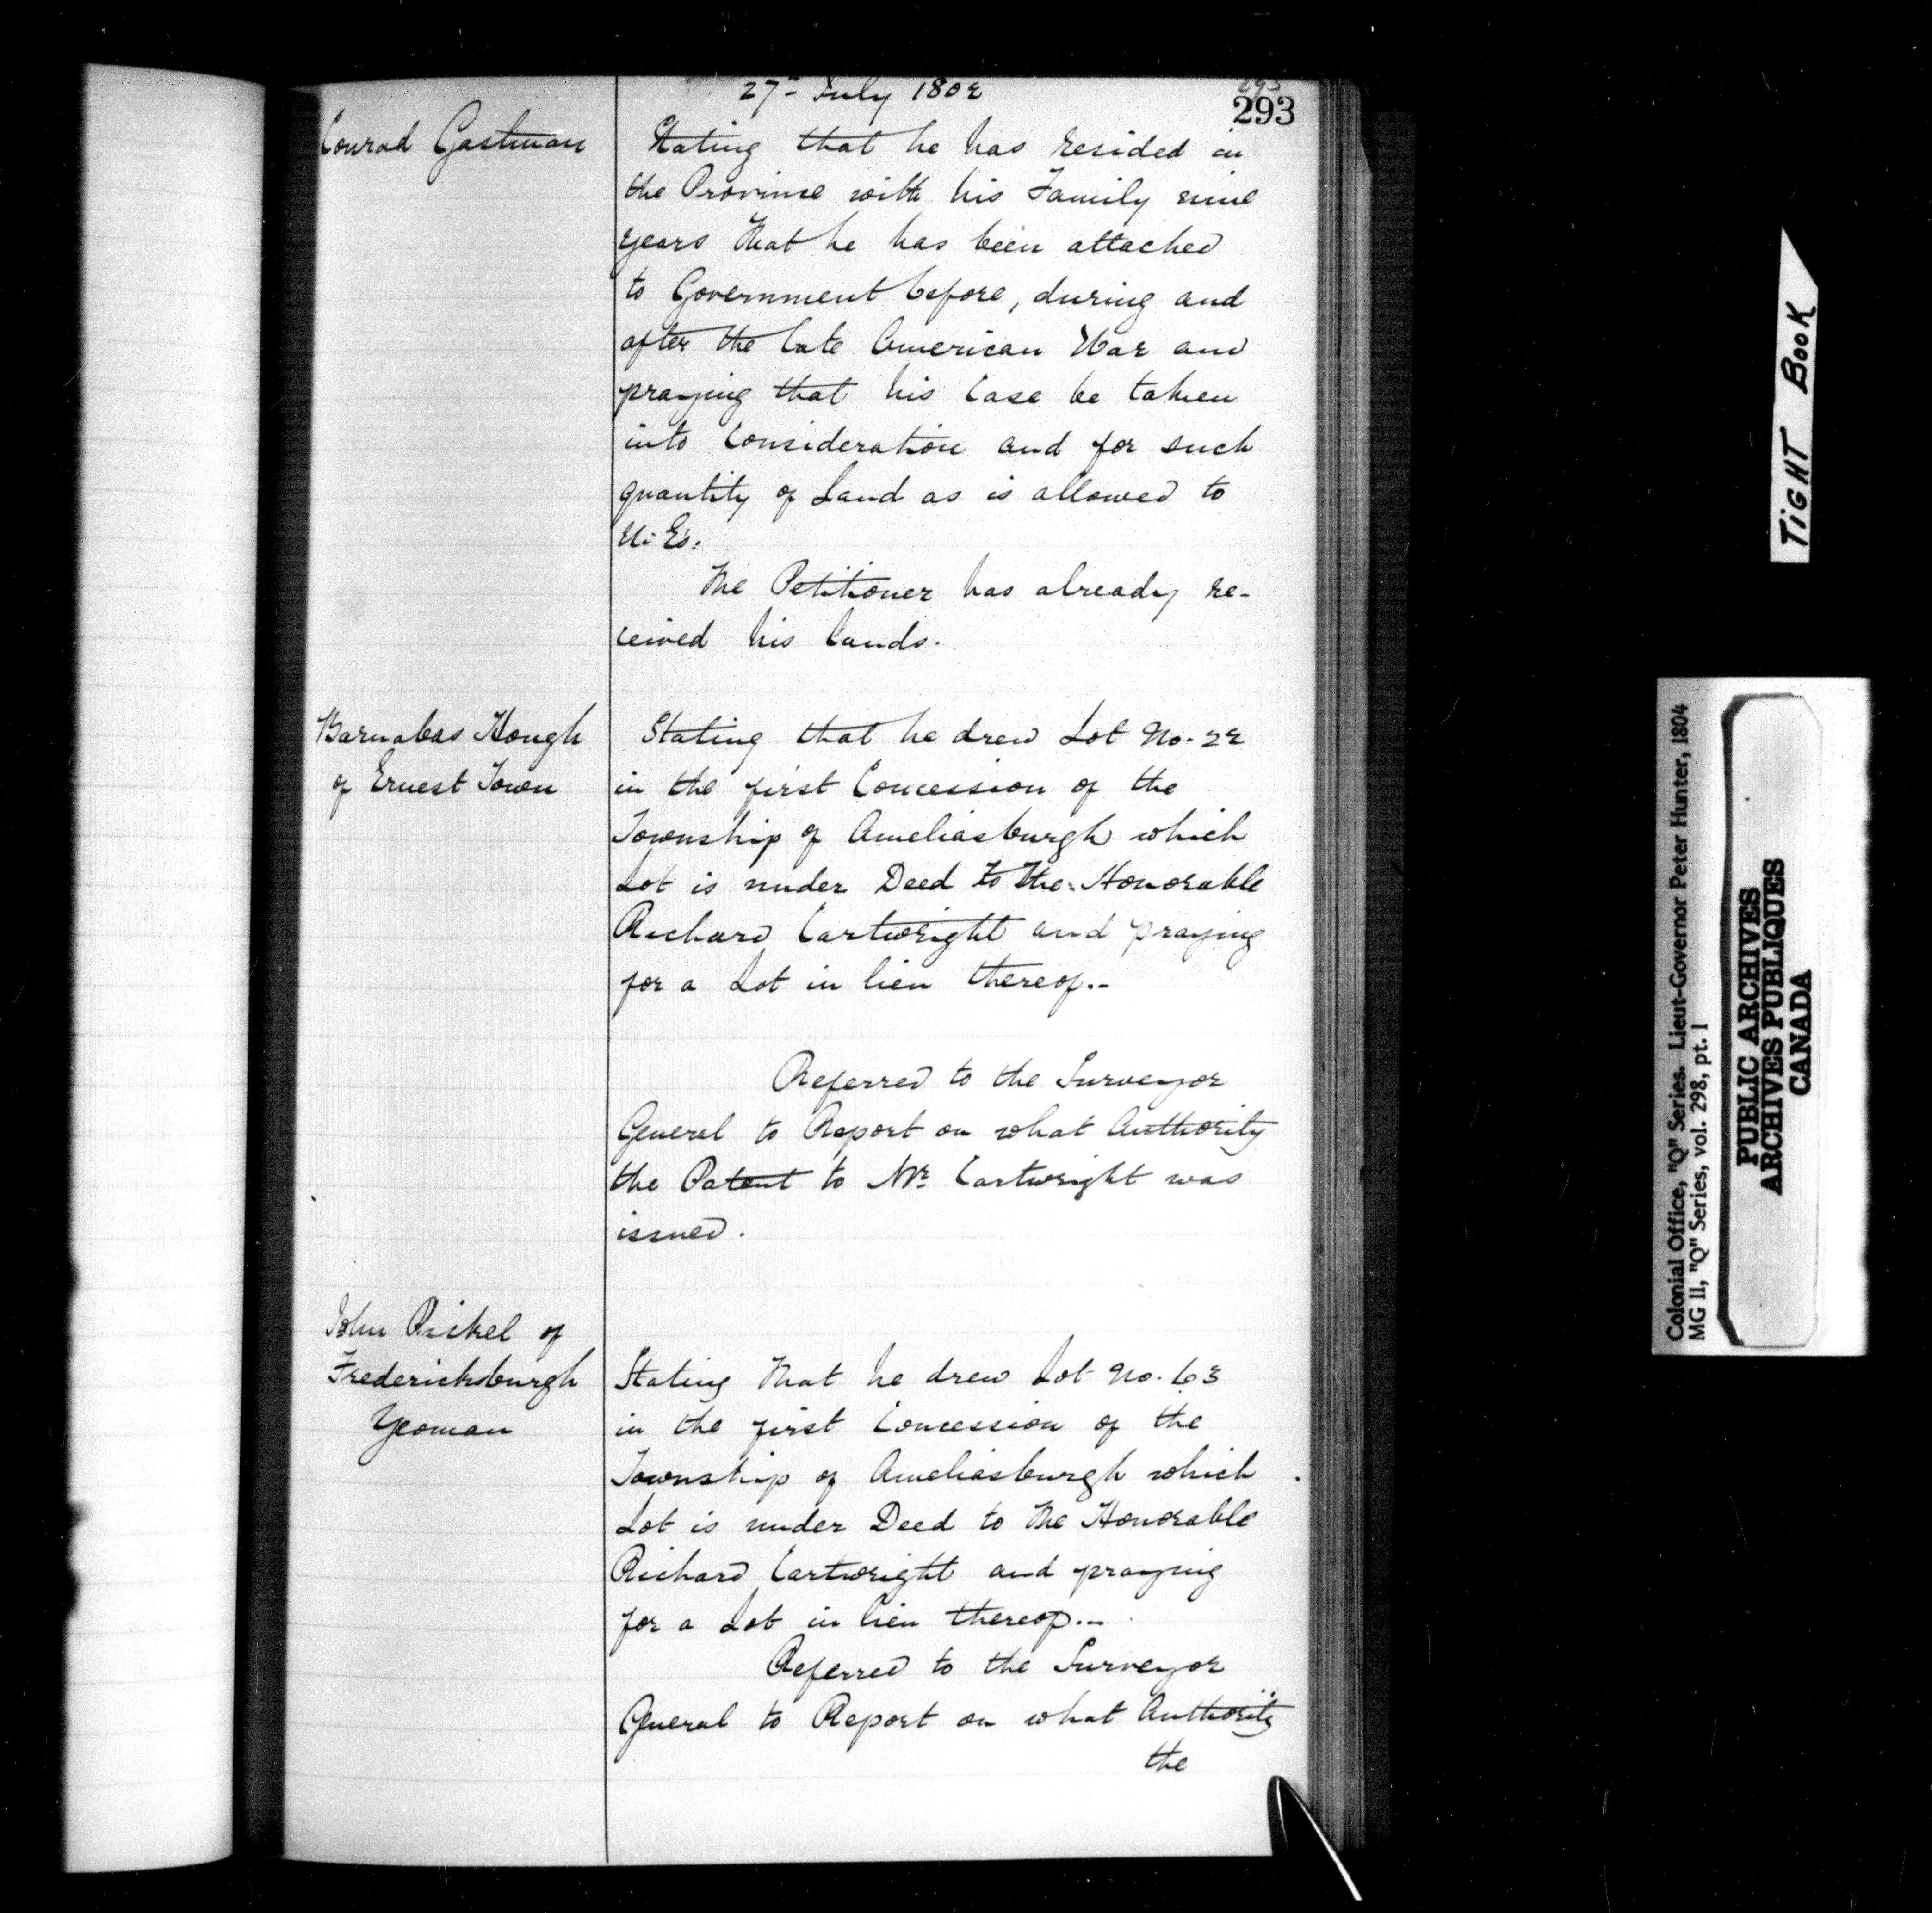 27th July 1802
293
Conrad Gastman
Stating that he has resided in
the Province with his Family nine
years that he has been attached
to Government before, during and
after the late American War and
praying that his Case be taken
into Consideration and for such
quantity of Land as is allowed to
U. Es:
The Petitioner has already re-
ceived his lands.
Barnabas Hough
of Ernest Town
Stating that he drew Lot No. 22
in the first Concession of the
Township of Ameliasburgh which
Lot is under Deed to the Honorable
Richard Cartwright and praying
for a Lot in lieu thereof.-
Referred to the Surveyor
General to Report on what Authority
the Patent to Mr. Cartwright was
issued.
John Pickel of
Fredericksburgh
Yeoman
Stating that he drew Lot No. 63
in the first Concession of the
Township of Ameliasburgh which
Lot is under Deed to the Honorable
Richard Cartwright and praying
for a Lot in lieu thereof.-
Referred to the Surveyor
General to Report on what Authority
the
TiGHT BOOK
Colonial Office, "Q" Series. Lieut-Governor Peter Hunter, 1804
MG 11, "Q" Series, vol. 298, pt. 1
PUBLIC ARCHIVES
ARCHIVES PUBLIQUES
CANADA